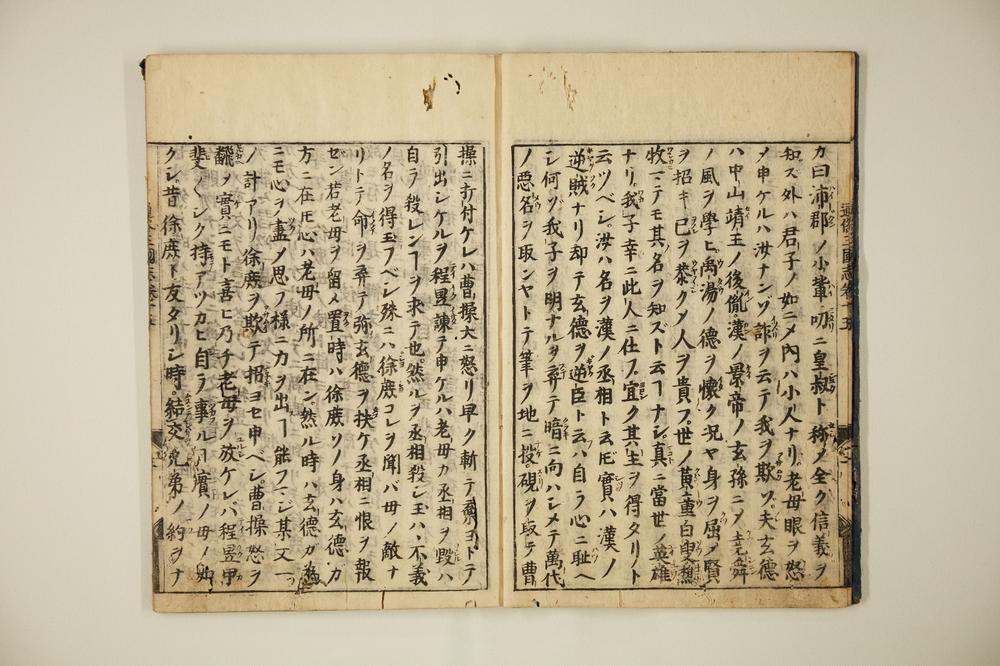 カ曰沛郡ノ小輩叨ニ皇叔ト称メ全ク信義ヲ
知ズ外ハ君子ノ如ニメ内ハ小人ナリ老母眼ヲ怒
メ申ケルハ汝ナンゾ詐ヲ云テ我ヲ欺ソ夫玄德
ハ中山靖王ノ後胤漢ノ景帝ノ玄孫ニソ堯舜
ノ風ヲ學ヒ禹湯ノ德ヲ懐ク况ヤ身ヲ屈メ賢
ヲ招キ己ヲ恭クメ人ヲ貴フ世ノ黄童白叟樵
牧ニテモ其名ヲ知ズト云ヿナシ真ニ當世ノ英雄
ナリ我子幸ニ此人ニ仕フ宜ク其主ヲ得タリト
云ツベシ汝ハ名ヲ漢ノ丞相ト云𪜈實ハ漢ノ
逆賊ナリ却テ玄德ヲ逆臣ト云ハ自ラ心ニ耻ヘ
シ何ソ我子ヲ明ナルヲ弃テ暗ニ向ハシメテ萬代
ノ悪名ヲ取ンヤトテ筆ヲ地ニ投硯ヲ取テ曹
操ニ打付ケレハ曹操大ニ怒リ早ク斬テ棄ヨトテ
引出シケルヲ程昱諌テ申ケルハ老母カ丞相ヲ毀ハ
自ラ殺レンヿヲ求テ也然ルヲ丞相殺シ玉ハ、不義
ノ名ヲ得玉フベシ殊ニハ徐庶コレヲ聞バ母ノ敵ナ
リトテ命ヲ弃テ弥玄德ヲ扶ケ丞相ニ恨ヲ報
ゼン若老母ヲ留メ置時ハ徐庶ソノ身ハ玄德カ
方ニ在𪜈心ハ老母ノ所ニ在ン然ル時ハ玄德ガ為
ニモ心ヲ盡ノ思フ様ニカヲ出ヿ能フマジ某又一
ノ計アリ徐庶ヲ欺テ招ヨセ申ベシ曹操怒ヲ
飜ヲ實ニモト喜ヒ乃チ老母ヲ放ケレバ程昱甲
斐〱シク持アツカヒ自ラ事ルヿ實ノ母ノ如
クシ昔徐庶ト友タリシ時結交兄弟ノ約ヲナ
通俗三國志巻十五